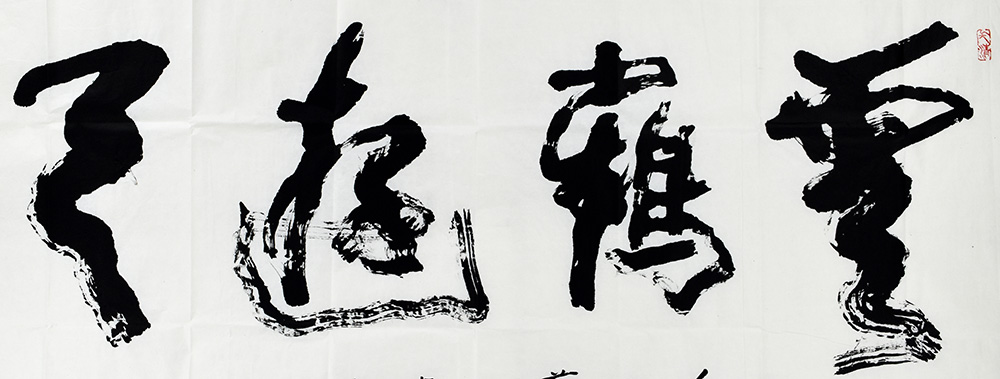 雲鶴遊天